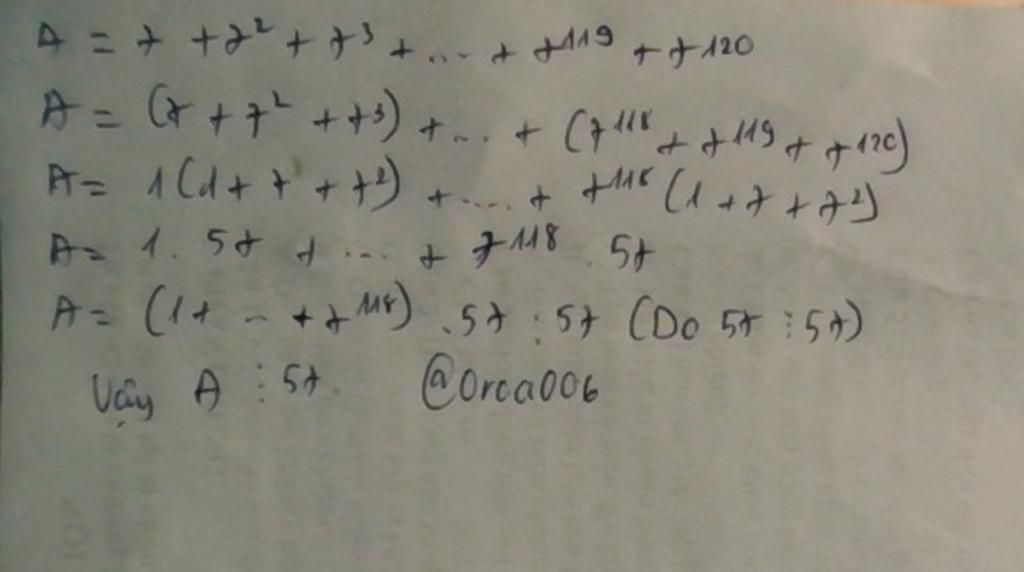 A = 7 + 7² + 7³ + ... + 7¹¹⁹ + 7¹²⁰
A = (7 + 7² + 7³) + ... + (7¹¹⁸ + 7¹¹⁹ + 7¹²⁰)
A = 1(1 + 7 + 7²) + .... + 7¹¹⁸ (1 + 7 + 7²)
A = 1. 57 + ... + 7¹¹⁸ . 57
A = (1 + .. + 7¹¹⁸) .57 ⋮ 57 (Do 57 ⋮ 57)
Vậy A ⋮ 57. @Orca006